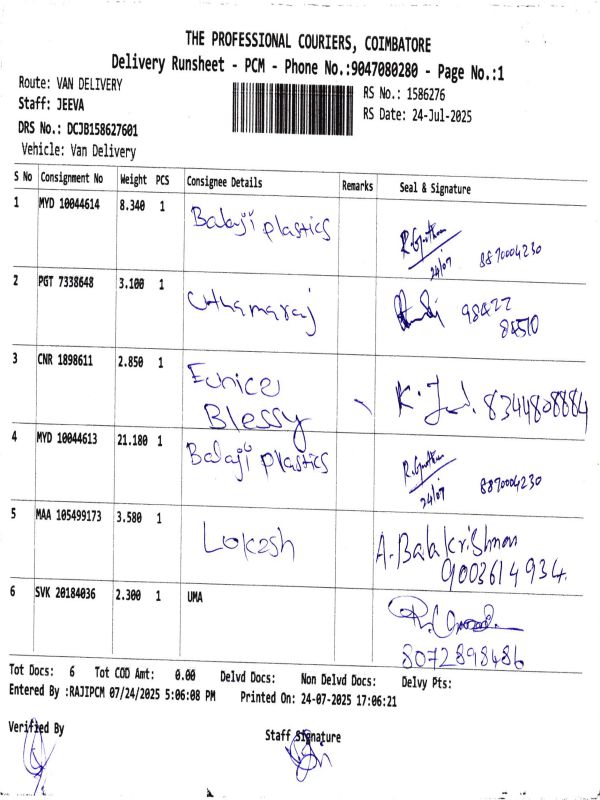 THE PROFESSIONAL COURIERS, COIMBATORE
Delivery Runsheet - PCM - Phone No.:9047080280 - Page No.:1
Route: VAN DELIVERY
RS No.: 1586276
Staff: JEEVA
RS Date: 24-Jul-2025
DRS No.: DCJB158627601
Vehicle: Van Delivery
S No Consignment No Weight PCS Consignee Details Remarks Seal & Signature
1 MYD 10044614 8.340 1 Balaji plastics
24/07 8870004230
2 PGT 7338648 3.100 1 98422
84510
3 CNR 1898611 2.850 1 Eunice
Blessy 8344808884
4 MYD 10044613 21.180 1 Balaji plastics
24/07 8870004230
5 MAA 105499173 3.580 1 Lokesh A. Balakrishnan
9003614934.
6 SVK 20184036 2.300 1 UMA
8072898486
Tot Docs: 6 Tot COD Amt: 0.00 Delvd Docs: Non Delvd Docs: Delvy Pts:
Entered By :RAJIPCM 07/24/2025 5:06:08 PM Printed On: 24-07-2025 17:06:21
Verified By
Staff Signature